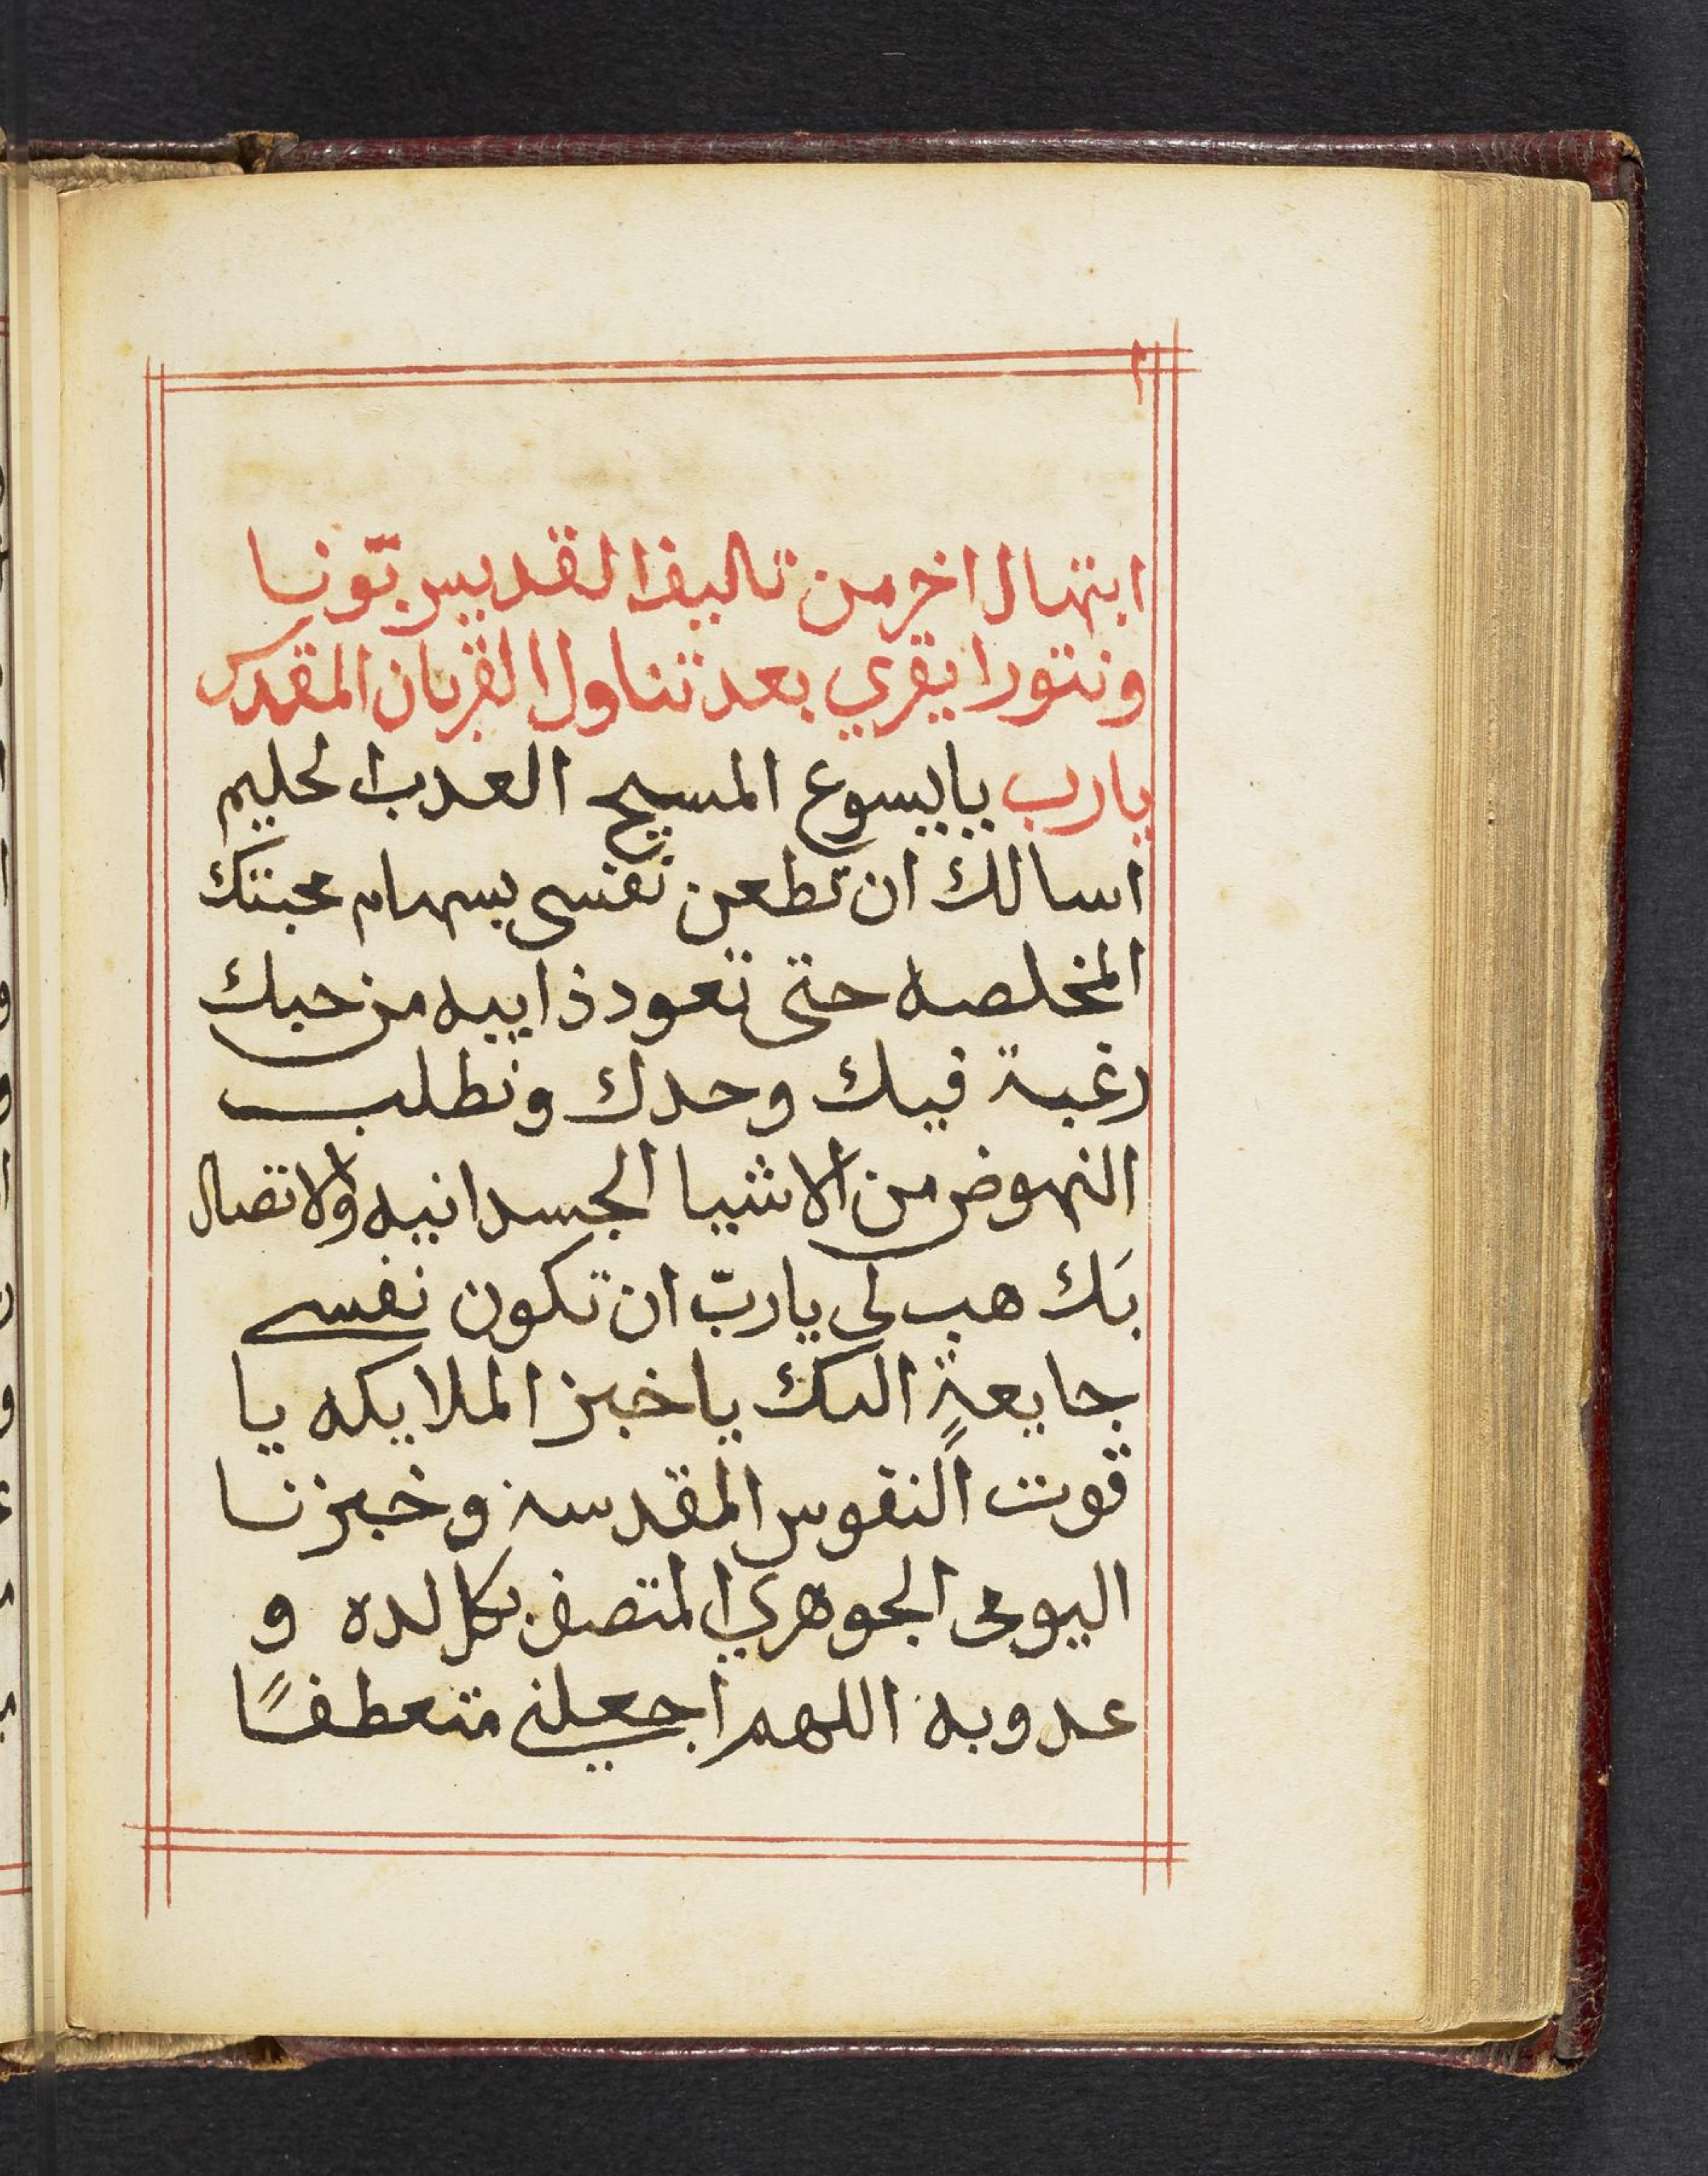 ابتهال اخر من تاليف القديس بّونا
ونتورا يقري بعد تناول القربان المقدس
يارب يايسوع المسيح العدب الحليم
اسالك ان تطعن نفسي بسهام محبتك
المخلصه حتى تعود ذاييه من حبك
رغبة فيك وحدك وتطلب
النهوض من الاشيا الجسدانيه والاتصال
بَك هب لي ياربّ ان تكون نفسي
جايعةٍ اليك يا خبز الملايكه يا
قوت النفوس المقدسة وخبزنا
اليومى الجوهري المتصف بكل لده و
عدوبه اللهم اجعلني متعطفًا